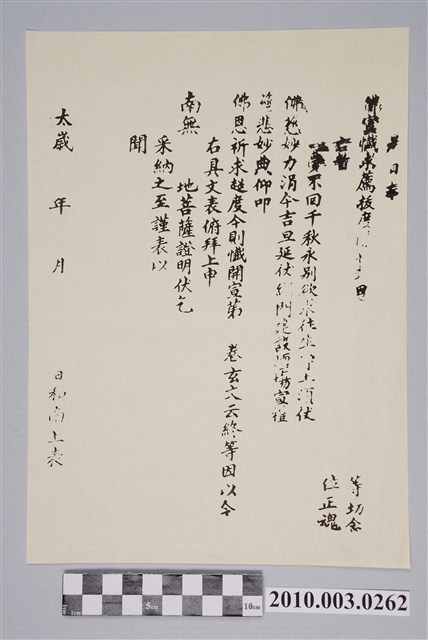 日奉
佛宣懺求薦拔度
等切念
位正魂
不回千秋永別欲求往生 土須仗
佛慈妙力涓今吉旦延仗 門 設 壇 宣
慈悲妙典仰叩
佛恩祈求超度今則懺開宣第 卷玄文云終等因以今
右具文表俯拜上申
南無 地菩薩證明伏乞
采納之至謹表以
聞
太歲 年 月 日和尚上表
1cm 5cm 10cm
2010.003.0262